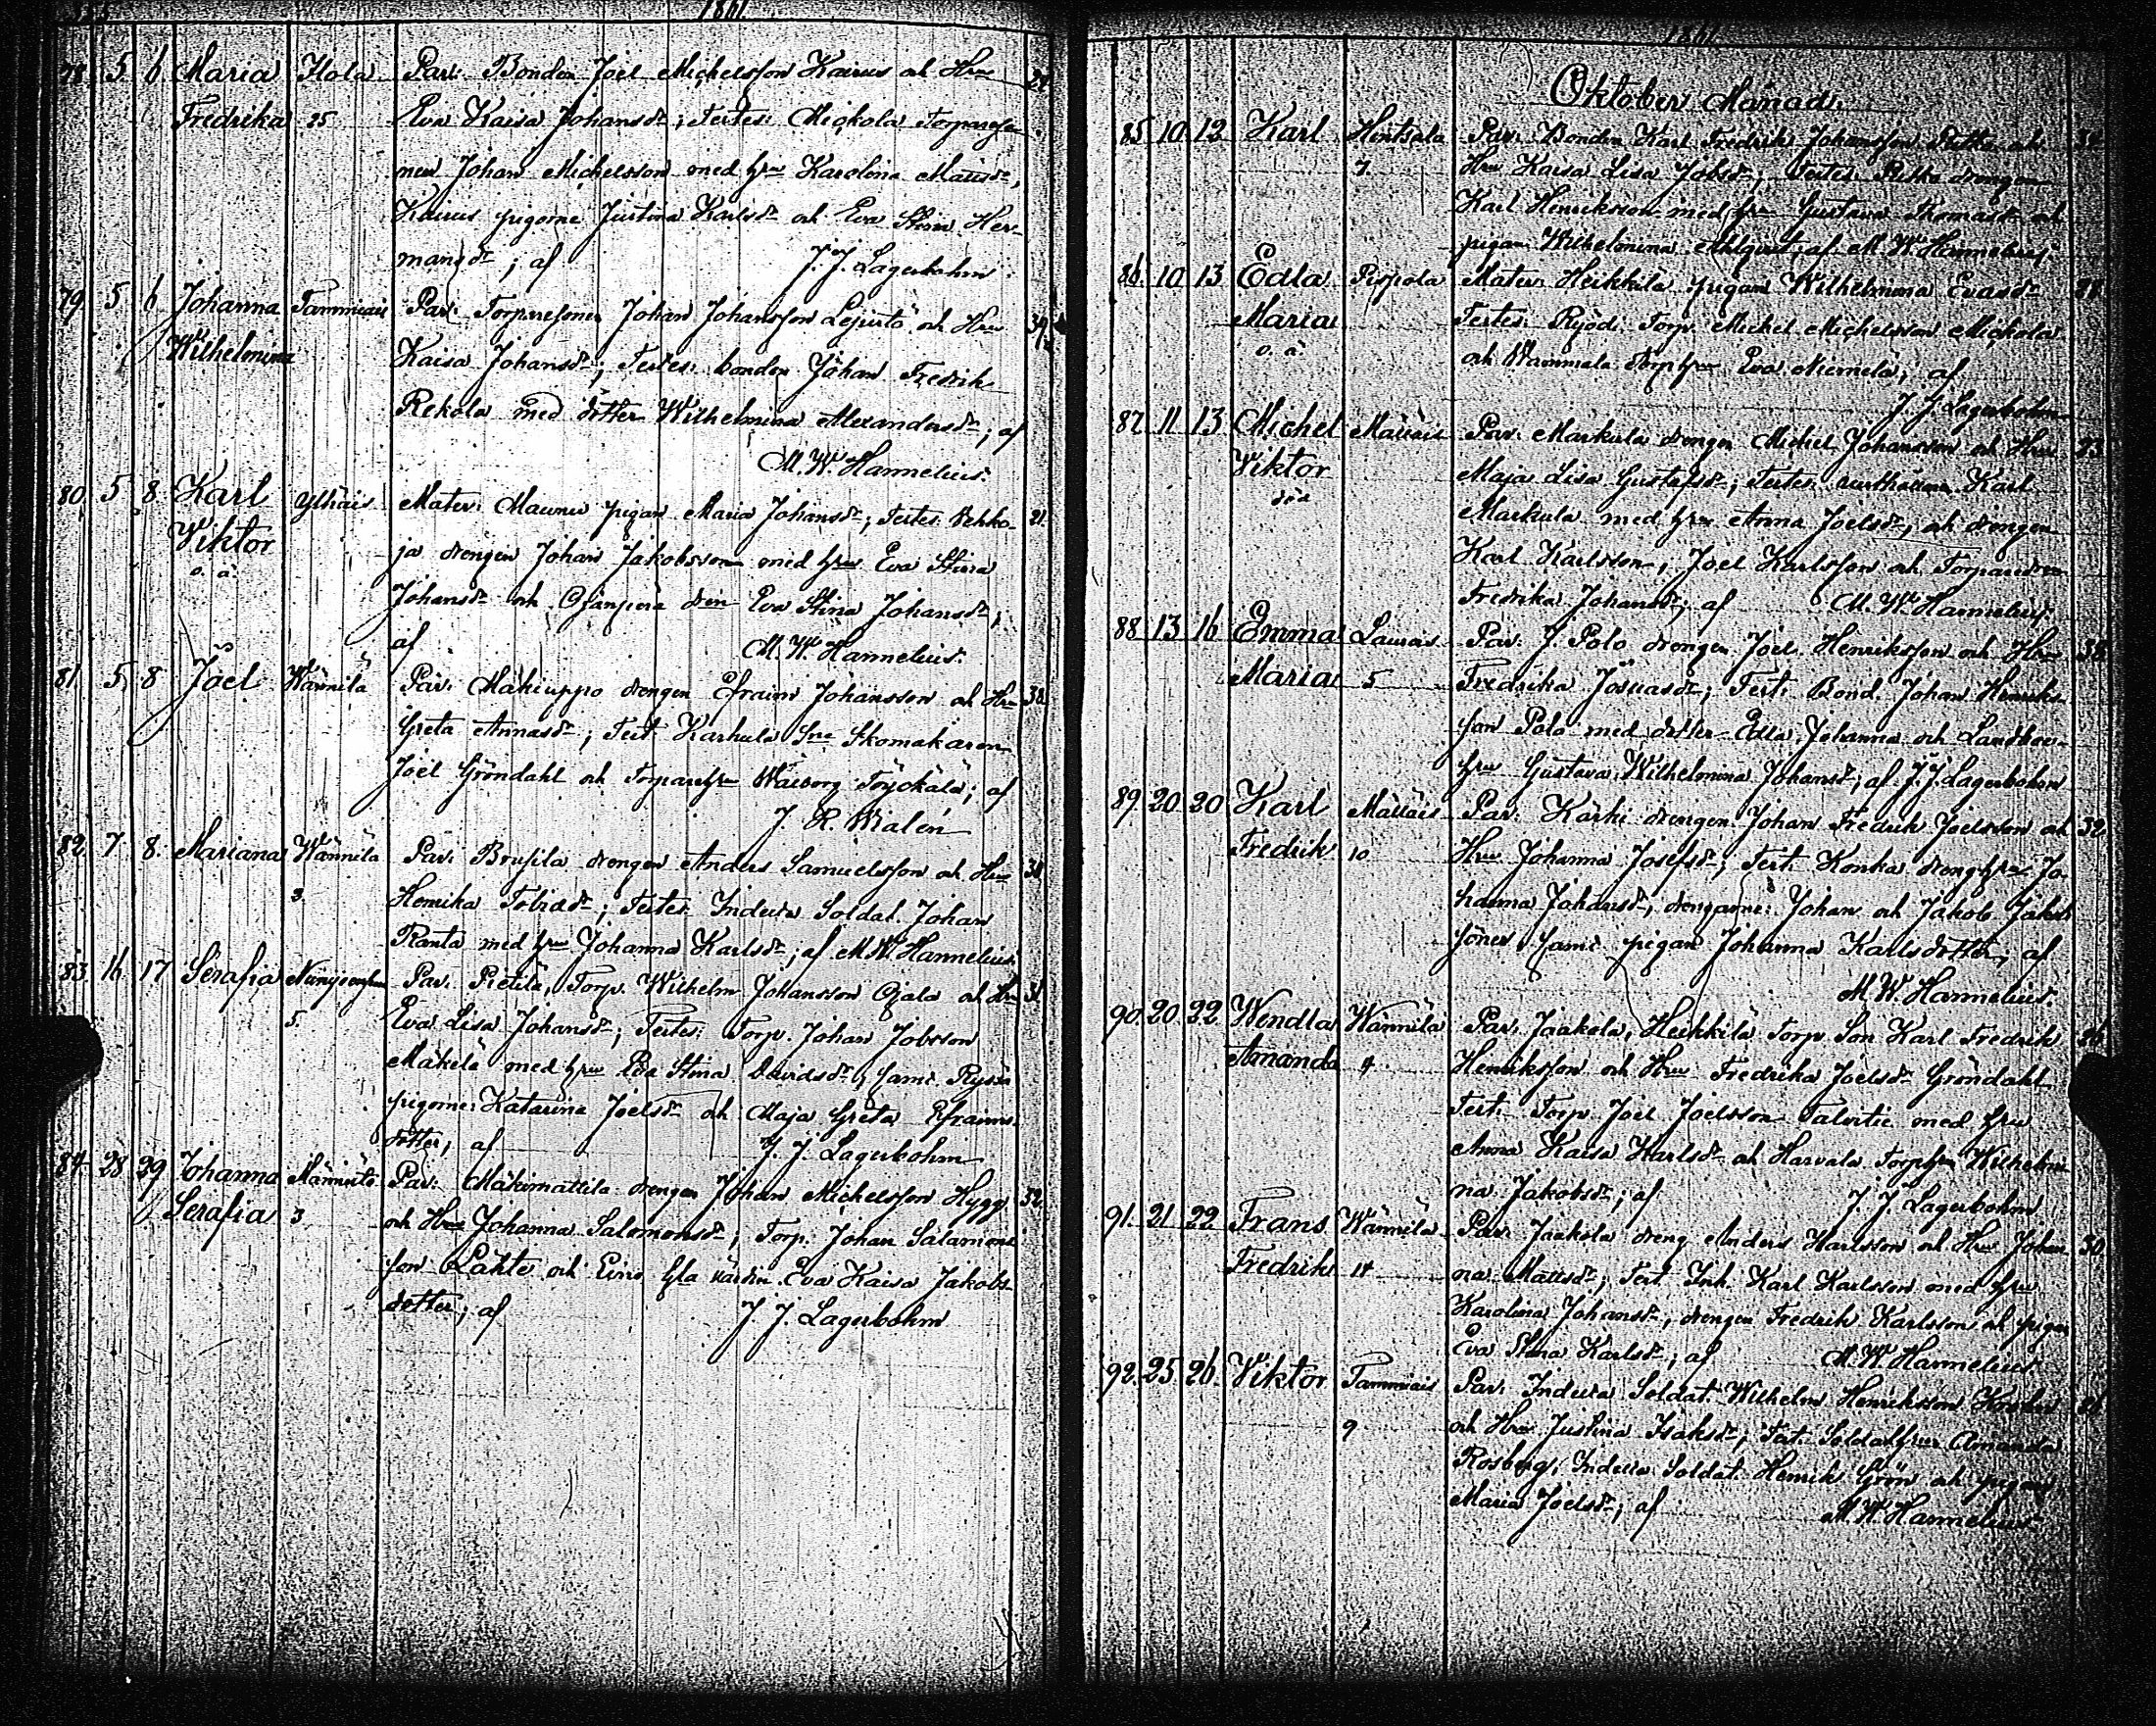 1861.
78 5 6 Maria Ilola Par: Bonden Joel Michelsson Kairus och Hru
Fredrika 25 Eva Kaisa Johansdr; Testes: Mickola Torpareso-
nen Johan Michelsson med hru Karolina Mattsdr,
Kairus pigorne Justina Karlsdr och Eva Stina Her-
mansdr; af J. J. Lagerbohm.
79 5 6 Johanna Tammiais Par: Torparesonen Johan Johansson Lepistö och Hru 39
Wilhelmina Kaisa Johansdr; Testes: bonden Johan Fredrik
Rekola med dotter Wilhelmina Alexandersdr; af
M. W. Hannelius.
80. 5 8. Karl Ylhäis Mater: Maunu pigan Maria Johansdr; Testes: Vehko- 21.
Viktor ja drengen Johan Jakobsson med hru Eva Stina
o. ä. Johansdr och Ojänperä drn Eva Stina Johansdr;
af M. W. Hannelius.
81. 5 8 Joel Wännilä Par: Mäkiuppo drengen Efraim Johansson och Hru 38.
Greta Annasdr; Test: Karhula Sne Skomakaren
Joel Gröndahl och Torparehru Walborg Töyökälä; af
J. R. Wialén
82. 7 8. Mariana Wännila Par: Brusila drengen Anders Samuelsson och Hru
3 Henrika Tobiasdr; Testes: Indelta Soldat. Johan
Ranta med hru Johanna Karlsdr; af M. W. Hannelius.
83. 16 17 Serafia Par: Pietilä, Torp. Wilhelm Johansson Ojala och Hru 31.
5. Eva Lisa Johansdr; Testes: Torp. Johan Jobsson
Mäkelä med hru Eva Stina Davidsdr, samt Ryssä
pigorne: Katarina Joelsdr och Maja Greta Efraims-
dotter; af J. J. Lagerbohm
84. 28 29 Johanna Männistö Par: Mäkimattila drengen Johan Michelsson Hygg 32.
Serafia 3 och Hru Johanna Salomonsdr; Torp: Johan Salamons-
son Lähte och Eino Gla värdin Eva Kaisa Jakobs-
dotter; af J. J. Lagerbohm
1861.
Oktober Månad.
85 10 12 Karl Hintsala Par: Bonden Karl Fredrik Johansson Pitka och
7. Hru Kaisa Lisa Jobsdr; Testes: Pitka drengen
Karl Henriksson med hru Gustava Thomasdr och
pigan Wilhelmina Ahlqvist; af M. W. Hannelius.
86. 10 13 Edla Pispola Mater: Heikkilä pigan Wilhelmina Evasdr
Maria Testes: Ryödi Torp: Michel Michelsson Mickola
o. ä. och Wammala Torphru Eva Niemelä; af
J. J. Lagerbohm
87. 11 13 Michel Mättäis Par: Markula drengen Michel Johansson och Hru 23.
Viktor Maja Lisa Gustafsdr; Testes: Karl
död Markula med hru Anna Joelsdr, och drengen
Karl Karlsson, Joel Karlsson och
Fredrika Johansdr; af M. W. Hannelius.
88 13 16 Emma Laurais Par: J. Polo drengen Joel Henriksson och Hru 38.
Maria 5 Fredrika Josuasdr; Test: Bond. Johan Henriks-
son Polo med dotter Edla Johanna och Landbo-
hru Gustava Wilhelmina Johansdr; af J. J. Lagerbohm
89. 20. 20 Karl Mättäis Par: Kärki drengen Johan Fredrik Joelsson och 32
Fredrik 10 Hru Johanna Josefsdr; Test: Konka drenghru Jo-
hanna Johansdr, drengarne: Johan och Jakob Jakob-
söner samt pigan Johanna Karlsdotter; af
M. W. Hannelius.
90. 20. 22. Wendla Wännilä Par: Jaakola, Heikkilä Torp Son Karl Fredrik 26
Amanda 4 Henriksson och Hru Fredrika Joelsdr Gröndahl
Test: Torp. Joel Joelsson Talvitie med hru
Anna Kaisa Karlsdr och Harvala Torphru Wilhelmi-
na Jakobsdr; af J. J. Lagerbohm
91. 21 22 Frans Wännilä Par: Jaakola dreng Anders Karlsson och Hru Johan- 30
Fredrik 14 na Mattsdr; Test: Inh. Karl Karlsson med hru
Karolina Johansdr, drengen Fredrik Karlsson och pigan
Eva Stina Karlsdr; af M. W. Hannelius.
92. 25. 26. Viktor Tammiais Par: Indelta Soldat. Wilhelm Henriksson
9 och Hru Justina Isaksdr; Test: Soldathru Amanda
Rosberg, Indelta Soldat. Henrik Grön och pigan
Maria Joelsdr; af M. W. Hannelius